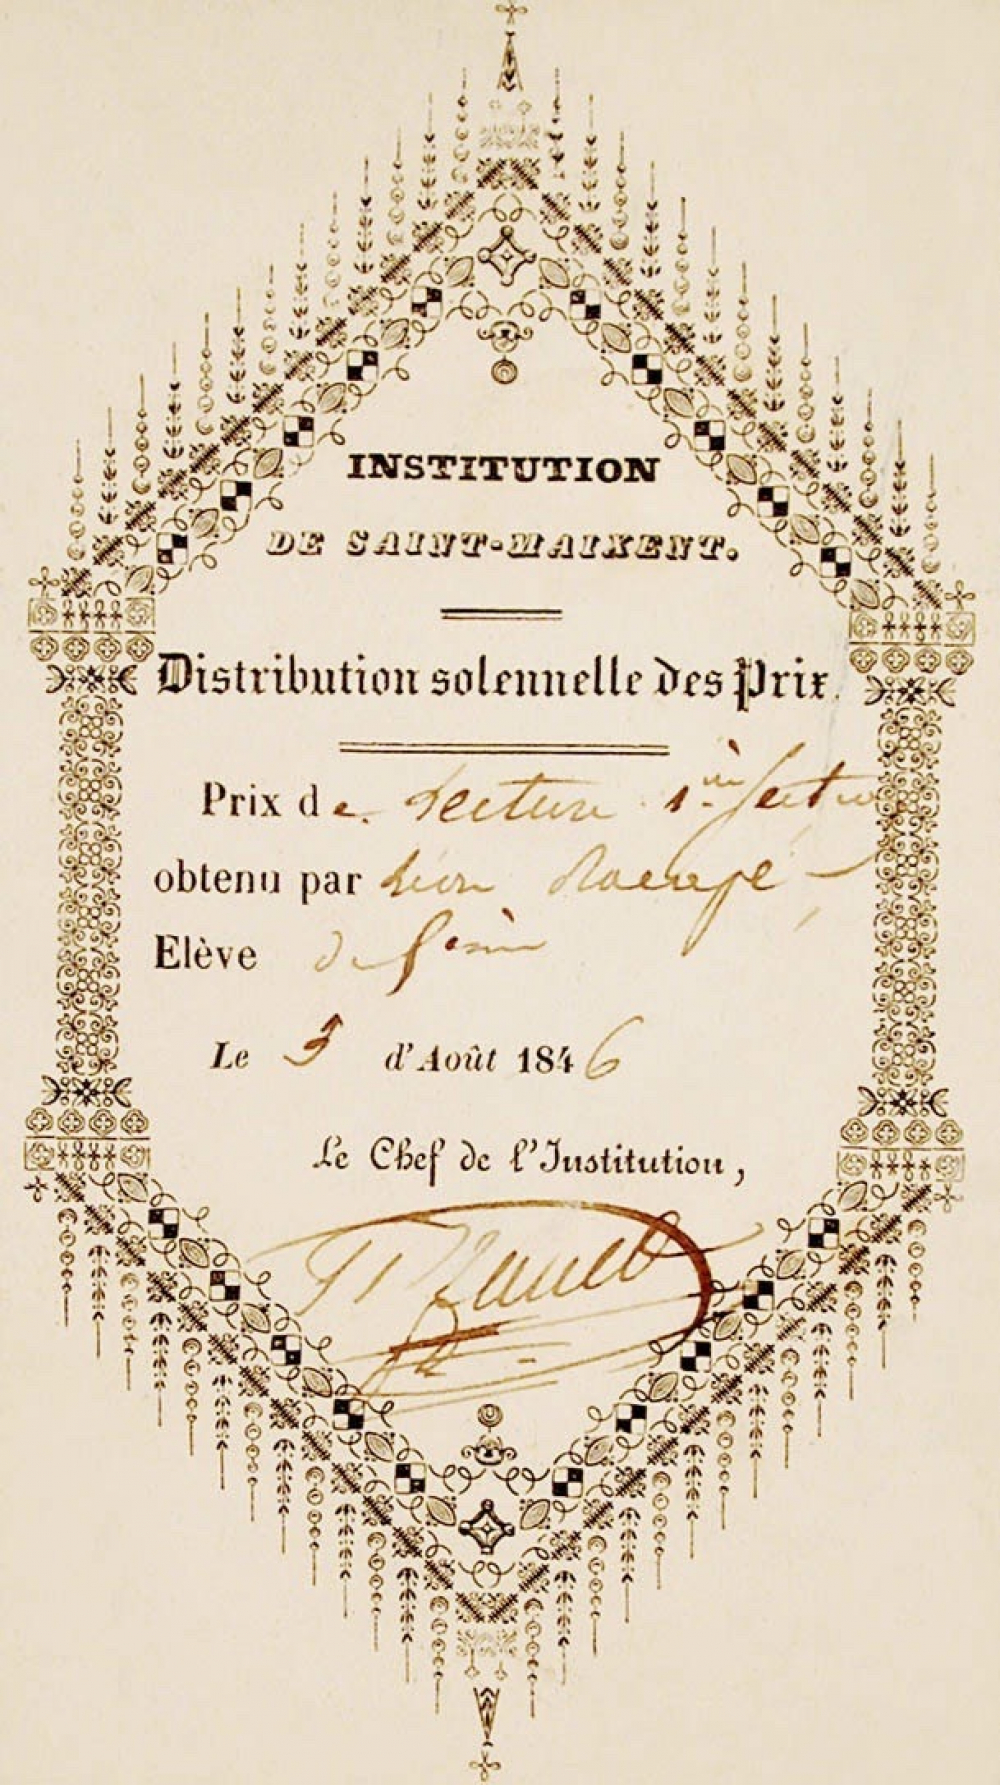 INSTITUTION
DE SAINT-MAIXENT.
Distribution solennelle des Prix.
Prix de Lecture 1ère Section
obtenu par Léon
Elève de
Le 3 d'Août 1846
Le Chef de l'Institution,